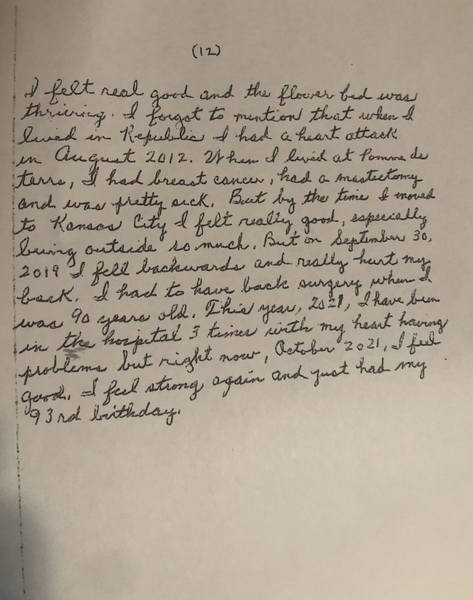 (12)
I felt real good and the flower bed was
thriving. I forgot to mention that when I
lived in Republic I had a heart attack
in August 2012. When I lived at Pomme de
terre, I had breast cancer, had a mastectomy
and was pretty sick. But by the time I moved
to Kansas City I felt really good, especially
being outside so much. But on September 30,
2019 I fell backwards and really hurt my
back. I had to have back surgery when I
was 90 years old. This year, 2021, I have been
in the hospital 3 times with my heart having
problems but right now, October 2021, I feel
good. I feel strong again and just had my
93rd birthday.